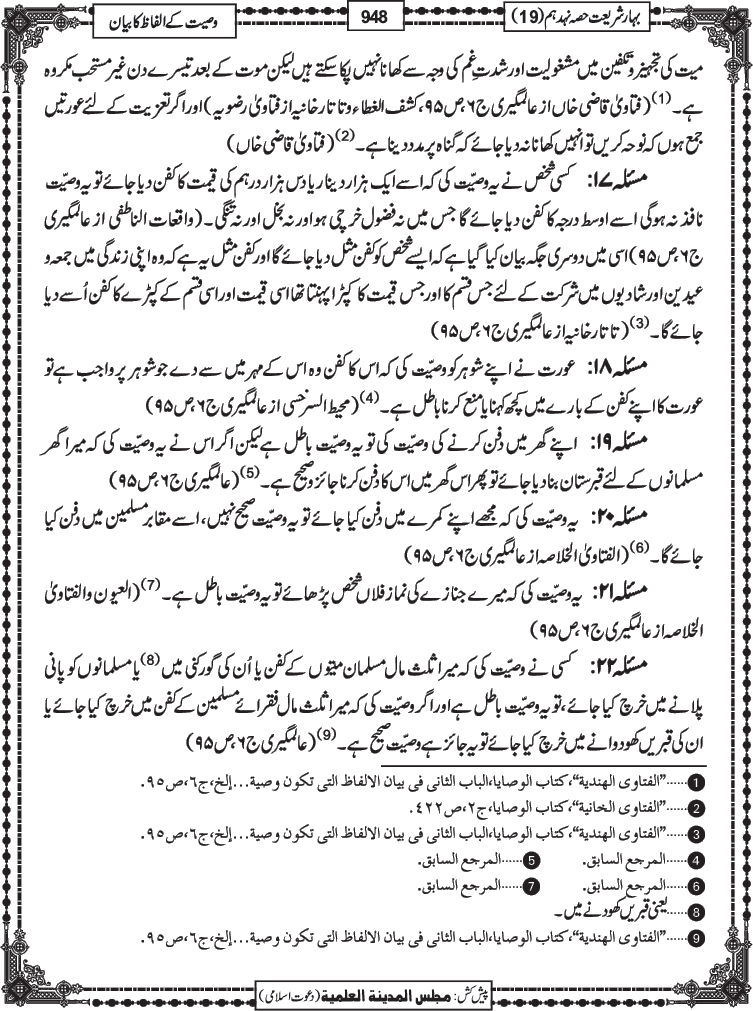 بہار شریعت حصہ نہدہم (19)
948
وصیت کے الفاظ کا بیان
میت کی تجہیز و تکفین میں مشغولیت اور شدتِ غم کی وجہ سے کھانا نہیں پکا سکتے ہیں لیکن موت کے بعد تیسرے دن غیر مستحب مکروہ
ہے۔(1) (فتاویٰ قاضی خاں از عالمگیری ج۶، ص۹۵، کشف الغطاء و تاتارخانیہ از فتاویٰ رضویہ) اور اگر تعزیت کے لئے عورتیں
جمع ہوں کہ نوحہ کریں تو انہیں کھانا نہ دیا جائے کہ گناہ پر مدد دینا ہے۔(2) (فتاویٰ قاضی خاں)
مسئلہ ۱۷: کسی شخص نے یہ وصیّت کی کہ اسے ایک ہزار دینار یا دس ہزار درہم کی قیمت کا کفن دیا جائے تو یہ وصیّت
نافذ نہ ہوگی اسے اوسط درجہ کا کفن دیا جائے گا جس میں نہ فضول خرچی ہو اور نہ بخل اور نہ تنگی۔ (واقعات الناطفی از عالمگیری
ج۶، ص۹۵) اسی میں دوسری جگہ بیان کیا گیا ہے کہ ایسے شخص کو کفن مثل دیا جائے گا اور کفن مثل یہ ہے کہ وہ اپنی زندگی میں جمعہ و
عیدین اور شادیوں میں شرکت کے لئے جس قسم کا اور جس قیمت کا کپڑا پہنتا تھا اسی قیمت اور اسی قسم کے کپڑے کا کفن اُسے دیا
جائے گا۔(3) (تاتارخانیہ از عالمگیری ج۶، ص۹۵)
مسئلہ ۱۸: عورت نے اپنے شوہر کو وصیّت کی کہ اس کا کفن وہ اس کے مہر میں سے دے جو شوہر پر واجب ہے تو
عورت کا اپنے کفن کے بارے میں کچھ کہنا یا منع کرنا باطل ہے۔(4) (محیط السرخسی از عالمگیری ج۶، ص۹۵)
مسئلہ ۱۹: اپنے گھر میں دفن کرنے کی وصیّت کی تو یہ وصیّت باطل ہے لیکن اگر اس نے یہ وصیّت کی کہ میرا گھر
مسلمانوں کے لئے قبرستان بنا دیا جائے تو پھر اس گھر میں اس کا دفن کرنا جائز و صحیح ہے۔(5) (عالمگیری ج۶، ص۹۵)
مسئلہ ۲۰: یہ وصیّت کی کہ مجھے اپنے کمرے میں دفن کیا جائے تو یہ وصیّت صحیح نہیں، اسے مقابر مسلمین میں دفن کیا
جائے گا۔(6) (الفتاویٰ الخلاصہ از عالمگیری ج۶، ص۹۵)
مسئلہ ۲۱: یہ وصیّت کی کہ میرے جنازے کی نماز فلاں شخص پڑھائے تو یہ وصیّت باطل ہے۔(7) (العیون والفتاویٰ
الخلاصہ از عالمگیری ج۶، ص۹۵)
مسئلہ ۲۲: کسی نے وصیّت کی کہ میرا ثلث مال مسلمان میتوں کے کفن یا اُن کی گورکنی میں(8) یا مسلمانوں کو پانی
پلانے میں خرچ کیا جائے، تو یہ وصیّت باطل ہے اور اگر وصیّت کی کہ میرا ثلث مال فقرائے مسلمین کے کفن میں خرچ کیا جائے یا
ان کی قبریں کھودوانے میں خرچ کیا جائے تو یہ جائز ہے وصیّت صحیح ہے۔(9) (عالمگیری ج۶، ص۹۵)
1......"الفتاوی الهندیة"، کتاب الوصایا، الباب الثانی فی بیان الالفاظ التی تکون وصیة...إلخ، ج٦، ص٩٥.
2......"الفتاوی الخانیة"، کتاب الوصایا، ج٢، ص٤٢٢.
3......"الفتاوی الهندیة"، کتاب الوصایا، الباب الثانی فی بیان الالفاظ التی تکون وصیة...إلخ، ج٦، ص٩٥.
4......المرجع السابق. 5......المرجع السابق.
6......المرجع السابق. 7......المرجع السابق.
8......یعنی قبریں کھودنے میں۔
9......"الفتاوی الهندیة"، کتاب الوصایا، الباب الثانی فی بیان الالفاظ التی تکون وصیة...إلخ، ج٦، ص٩٥.
پیش کش: مجلس المدینة العلمیة (دعوت اسلامی)